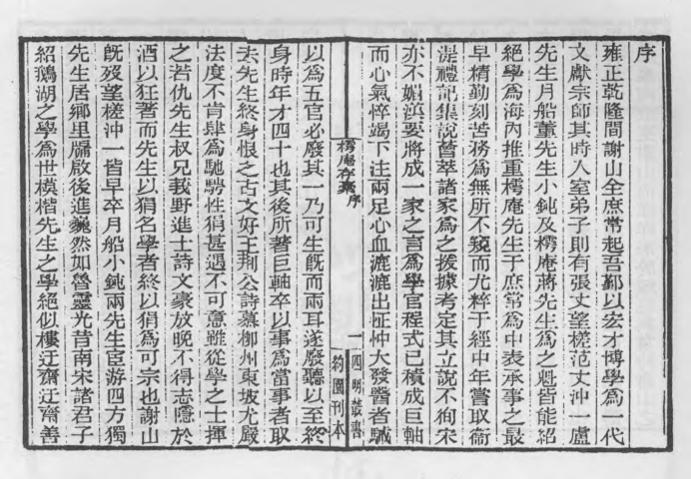 序
雍正乾隆間謝山全庶常起吾鄞以宏才博學為一代
文獻宗師其時入室弟子則有張丈望槎范丈沖一盧
先生月船董先生小鈍及樗庵蔣先生為之魁皆能紹
絕學為海內推重樗庵先生于庶常為中表承事之最
早精勤刻苦務為無所不窺而尤粹于經中年嘗取衞
湜禮記集說薈萃諸家為之援據考定其立說不徇宋
亦不媚漢要將成一家之言為學官程式已積成巨軸
而心氣悴竭下注兩足心血漉漉出怔忡大發醫者駴
樗庵存稾 序
一
四明叢書
約園刊本
以為五官必廢其一乃可生旣而兩耳遂廢聽以至終
身時年才四十也其後所著巨軸卒以事為當事者取
去先生終身恨之古文好王荆公詩慕柳州東坡尤嚴
法度不肯肆為馳騁性狷甚遇不可意雖從學之士揮
之若仇先生叔兄蓼野進士詩文豪放晚不得志隱於
酒以狂著而先生以狷名學者終以狷為可宗也謝山
旣歿望槎沖一皆早卒月船小鈍兩先生宦游四方獨
先生居鄉里牖啟後進巍然如魯靈光昔南宋諸君子
紹鵝湖之學為世模楷先生之學絕似樓迂齋迂齋善